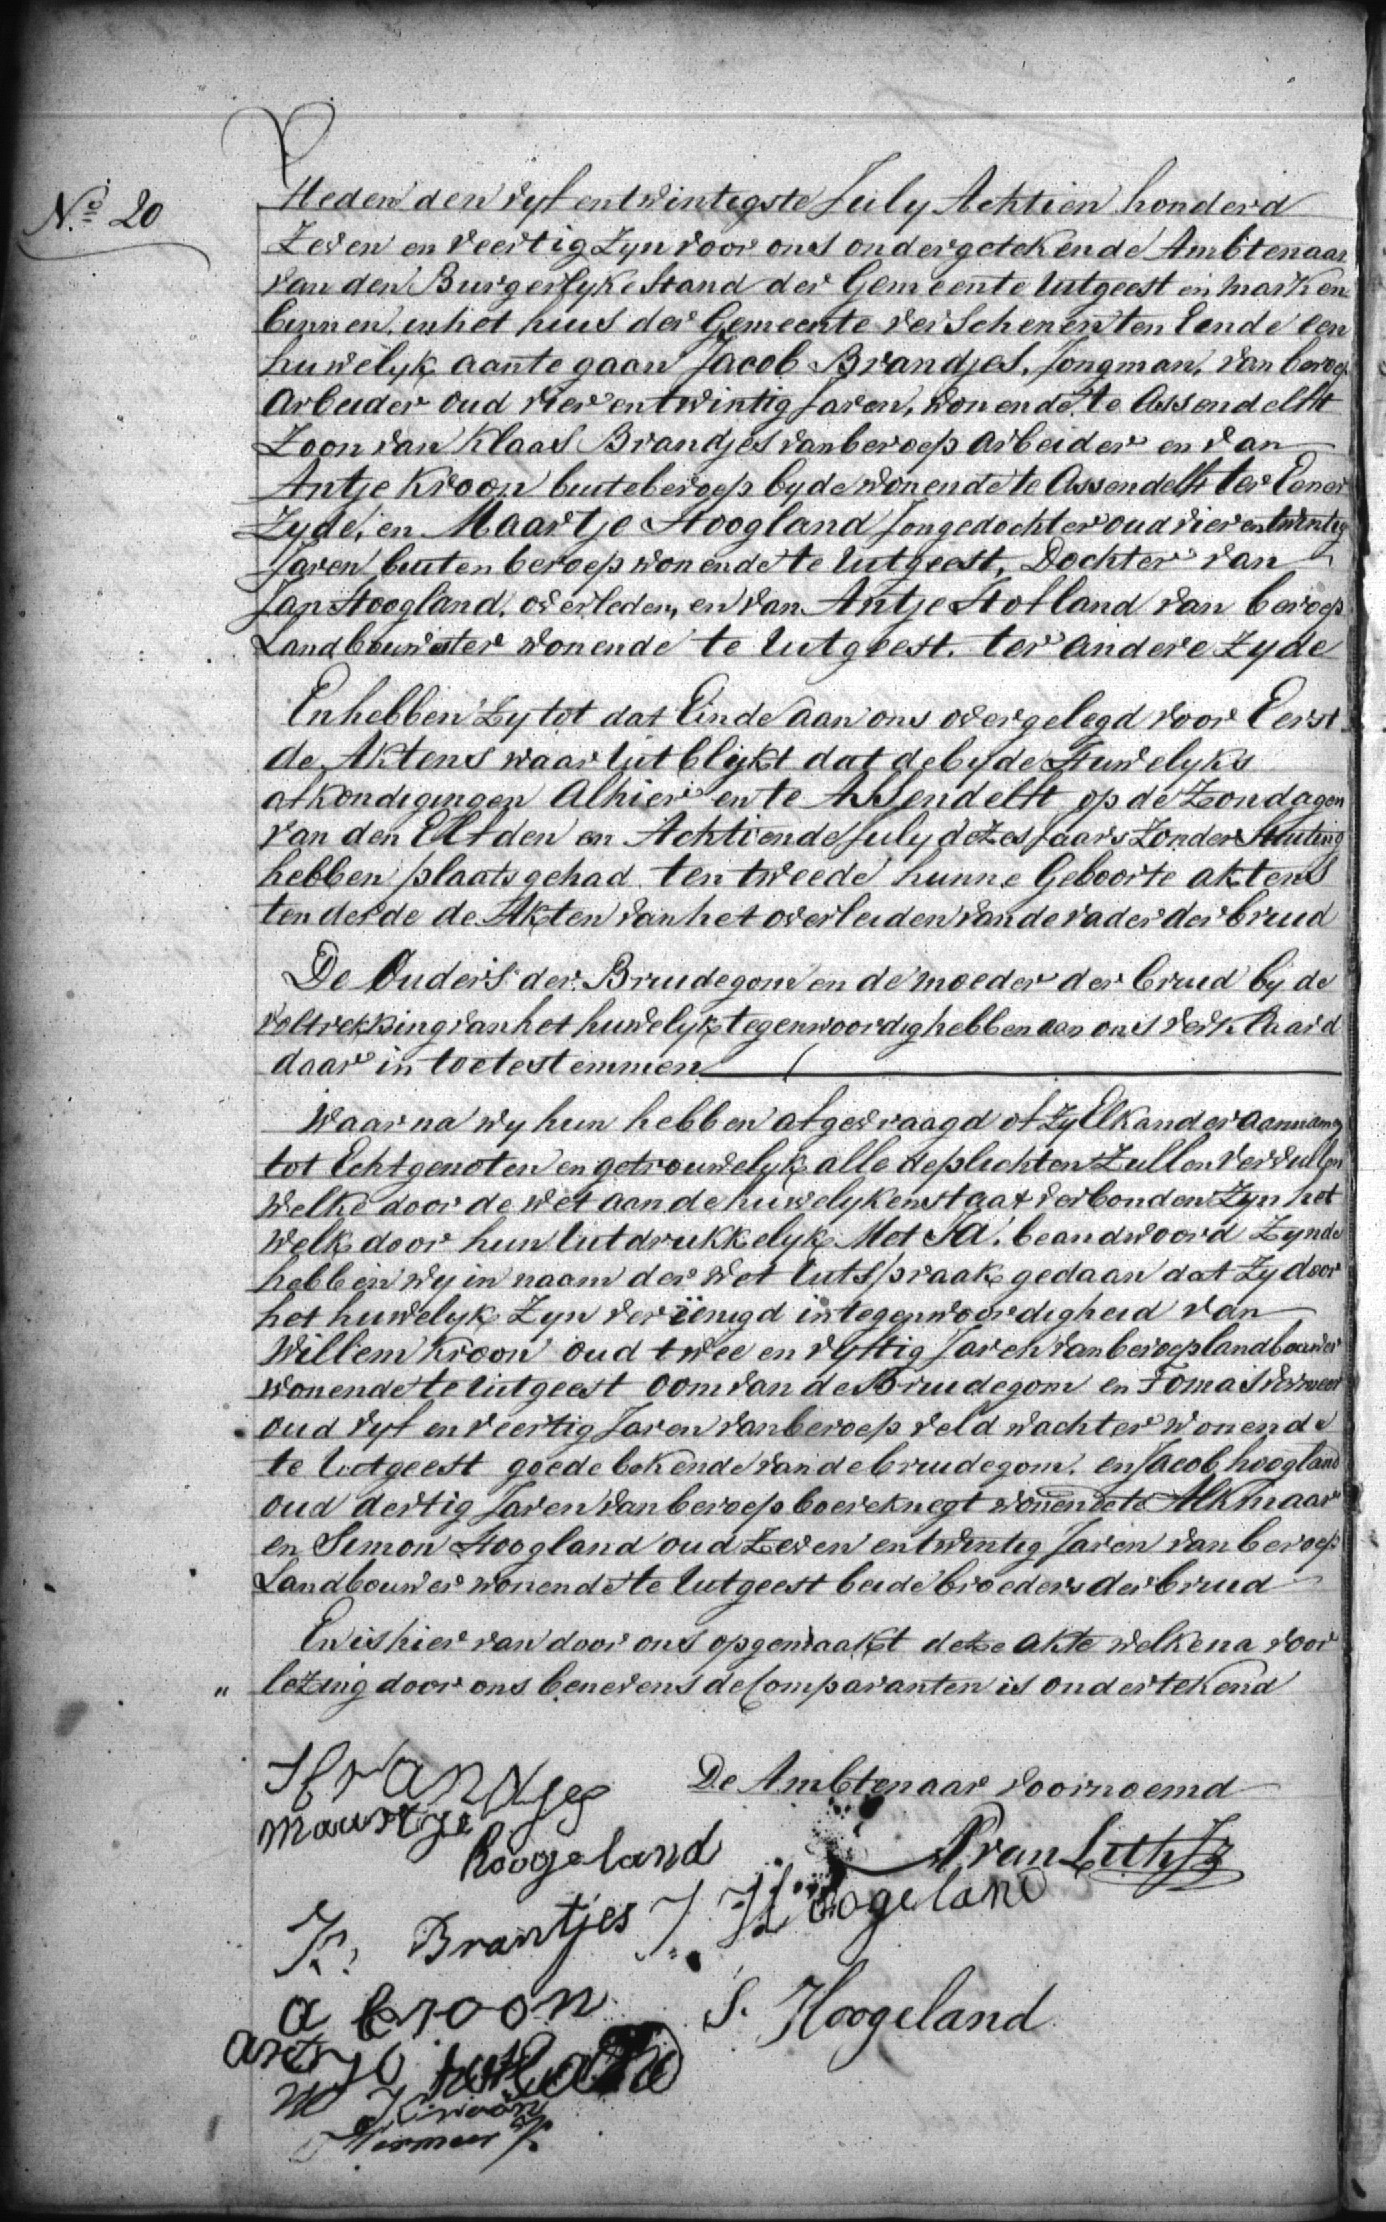 No. 20
Heden den vyf entwintigste July Achtien honderd
Zeven en veertig Zyn voor ons ondergetekende Ambtenaar
van den Burgerlyke Stand der Gemeente Uitgeest en Marken
binnen, in het huis der Gemeente verschenen ten Einde een
huwelyk aante gaan Jacob Brandjes, Jongman, van beroep
Arbeider oud vier entwintig Jaren, wonende te Assendelft
Zoon van Klaas Brandjes van beroep arbeider en van
Antje Kroon buiteberoep byde wonende te Assendelft ter Eener
Zyde, en Maartje Hoogland Jongedochter oud vier entwintig
Jaren buiten beroep wonende te Uitgeest, Dochter van
Jan Hoogland, overleden, en van Antje Hofland van beroep
Landbouwster wonende te Uitgeest. ter andere Zyde
En hebben Zy tot dat Einde aan ons overgelegd voor Eerst
de Aktens waar Uit blykt dat de byde Huwelyks
afkondigingen Alhier en te Assendelft op de Zondagen
van den Elfden en Achtiende July dezes Jaars Zonder Stuiting
hebben plaats gehad ten tweede hunne Geboorte aktens
ten derde de Akten van het overleiden van de vader der bruid
De Ouders der Bruidegom en de moeder der bruid by de
voltrekking van het huwelyk tegenwoordig hebben aan ons verklaard
daar in toetestemmen
Waar na wy hun hebben afgevraagd of Zy Elkander aannamen
tot Echtgenoten en getrouwelyk alle de plichten Zullen vervullen
welke door de wet aan de huwelyken staat verbonden Zyn het
welk door hun Uitdrukkelyk Met Ja. beandwoord Zynde
hebben wy in naam der wet Uitspraak gedaan dat Zy door
het huwelyk Zyn verëenigd in tegenwoordigheid van
Willem Kroon oud twee en vyftig Jaren van beroep landbouwer
wonende te Uitgeest oom van de Bruidegom en Tomas Vermeer
oud vyf en veertig Jaren van beroep veld wachter wonende
te Uitgeest goede bekende van de bruidegom. en Jacob hoogland
oud dertig Jaren van beroep boereknegt wonende te Alkmaar
en Simon Hoogland oud Zeven entwintig Jaren van beroep
Landbouwer wonende te Uitgeest beide broeders der bruid
En is hier van door ons opgemaakt deze akte welke na voor
" lezing door ons benevens de Comparanten is ondertekend
De Ambtenaar voornoemd
J brantjes
Maartje
hoogeland
K. Brantjes J. Hoogeland
a kroon S. Hoogeland
antje
W Kroon
T Vermeer